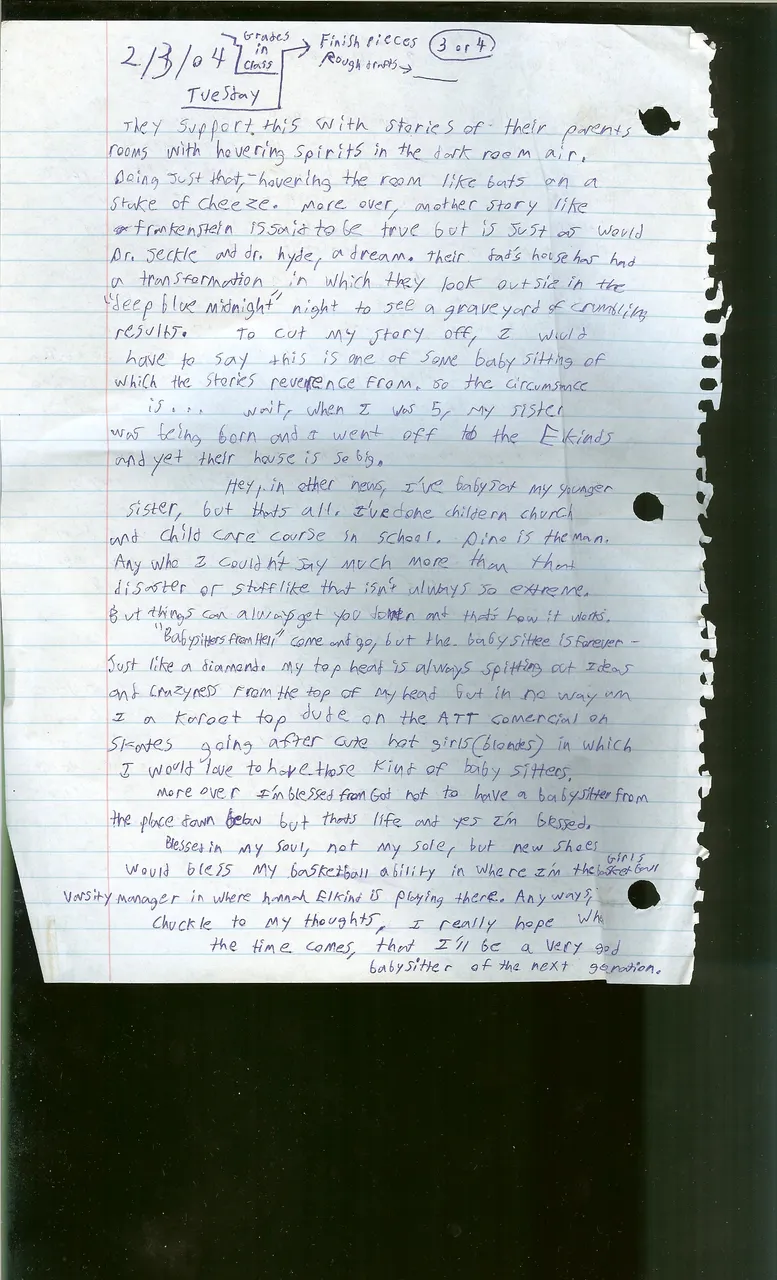 2/3/04 Grades in Class → Finish pieces (3 or 4)
Rough drafts → ____
Tuesday
They support this with stories of their parents
rooms with hovering spirits in the dark room air.
Doing just that, - hovering the room like bats on a
stake of cheeze. More over, another story like
frankenstein is said to be true but is just as would
Dr. Jeckle and dr. hyde, a dream. their dad's house has had
a transformation in which they look outside in the
"deep blue midnight" night to see a graveyard of crumbling
results. To cut my story off, I would
have to say this is one of some baby sitting of
which the stories reverence from. so the circumsnace
is... wait, when I was 5, my sister
was being born and I went off to the Elkinds
and yet their house is so big.
Hey, in other news, I've babysat my younger
sister, but thats all. I've done childern church
and child care course in school. Dino is the man.
Any who I couldn't say much more than that
disaster or stuff like that isn't always so extreme.
But things can always get you down and that's how it works.
"Babysitters from Hell" come and go, but the babysittee is forever -
Just like a diamond. my top head is always spitting out Ideas
and Crazyness From the top of my head but in no way am
I a Karoot top dude on the ATT comercial on
Skates going after cute hot girls (blondes) in which
I would love to have those kind of baby sitters.
more over I'm blessed from God not to have a babysitter from
the place down below but thats life and yes I'm blessed.
Blessed in my soul, not my sole, but new shoes
would bless my basketball ability in where I'm the girls basketball
Varsity manager in where hannah Elkind is playing there. Any ways,
Chuckle to my thoughts, I really hope whe
the time comes, that I'll be a very god
babysitter of the next genration.